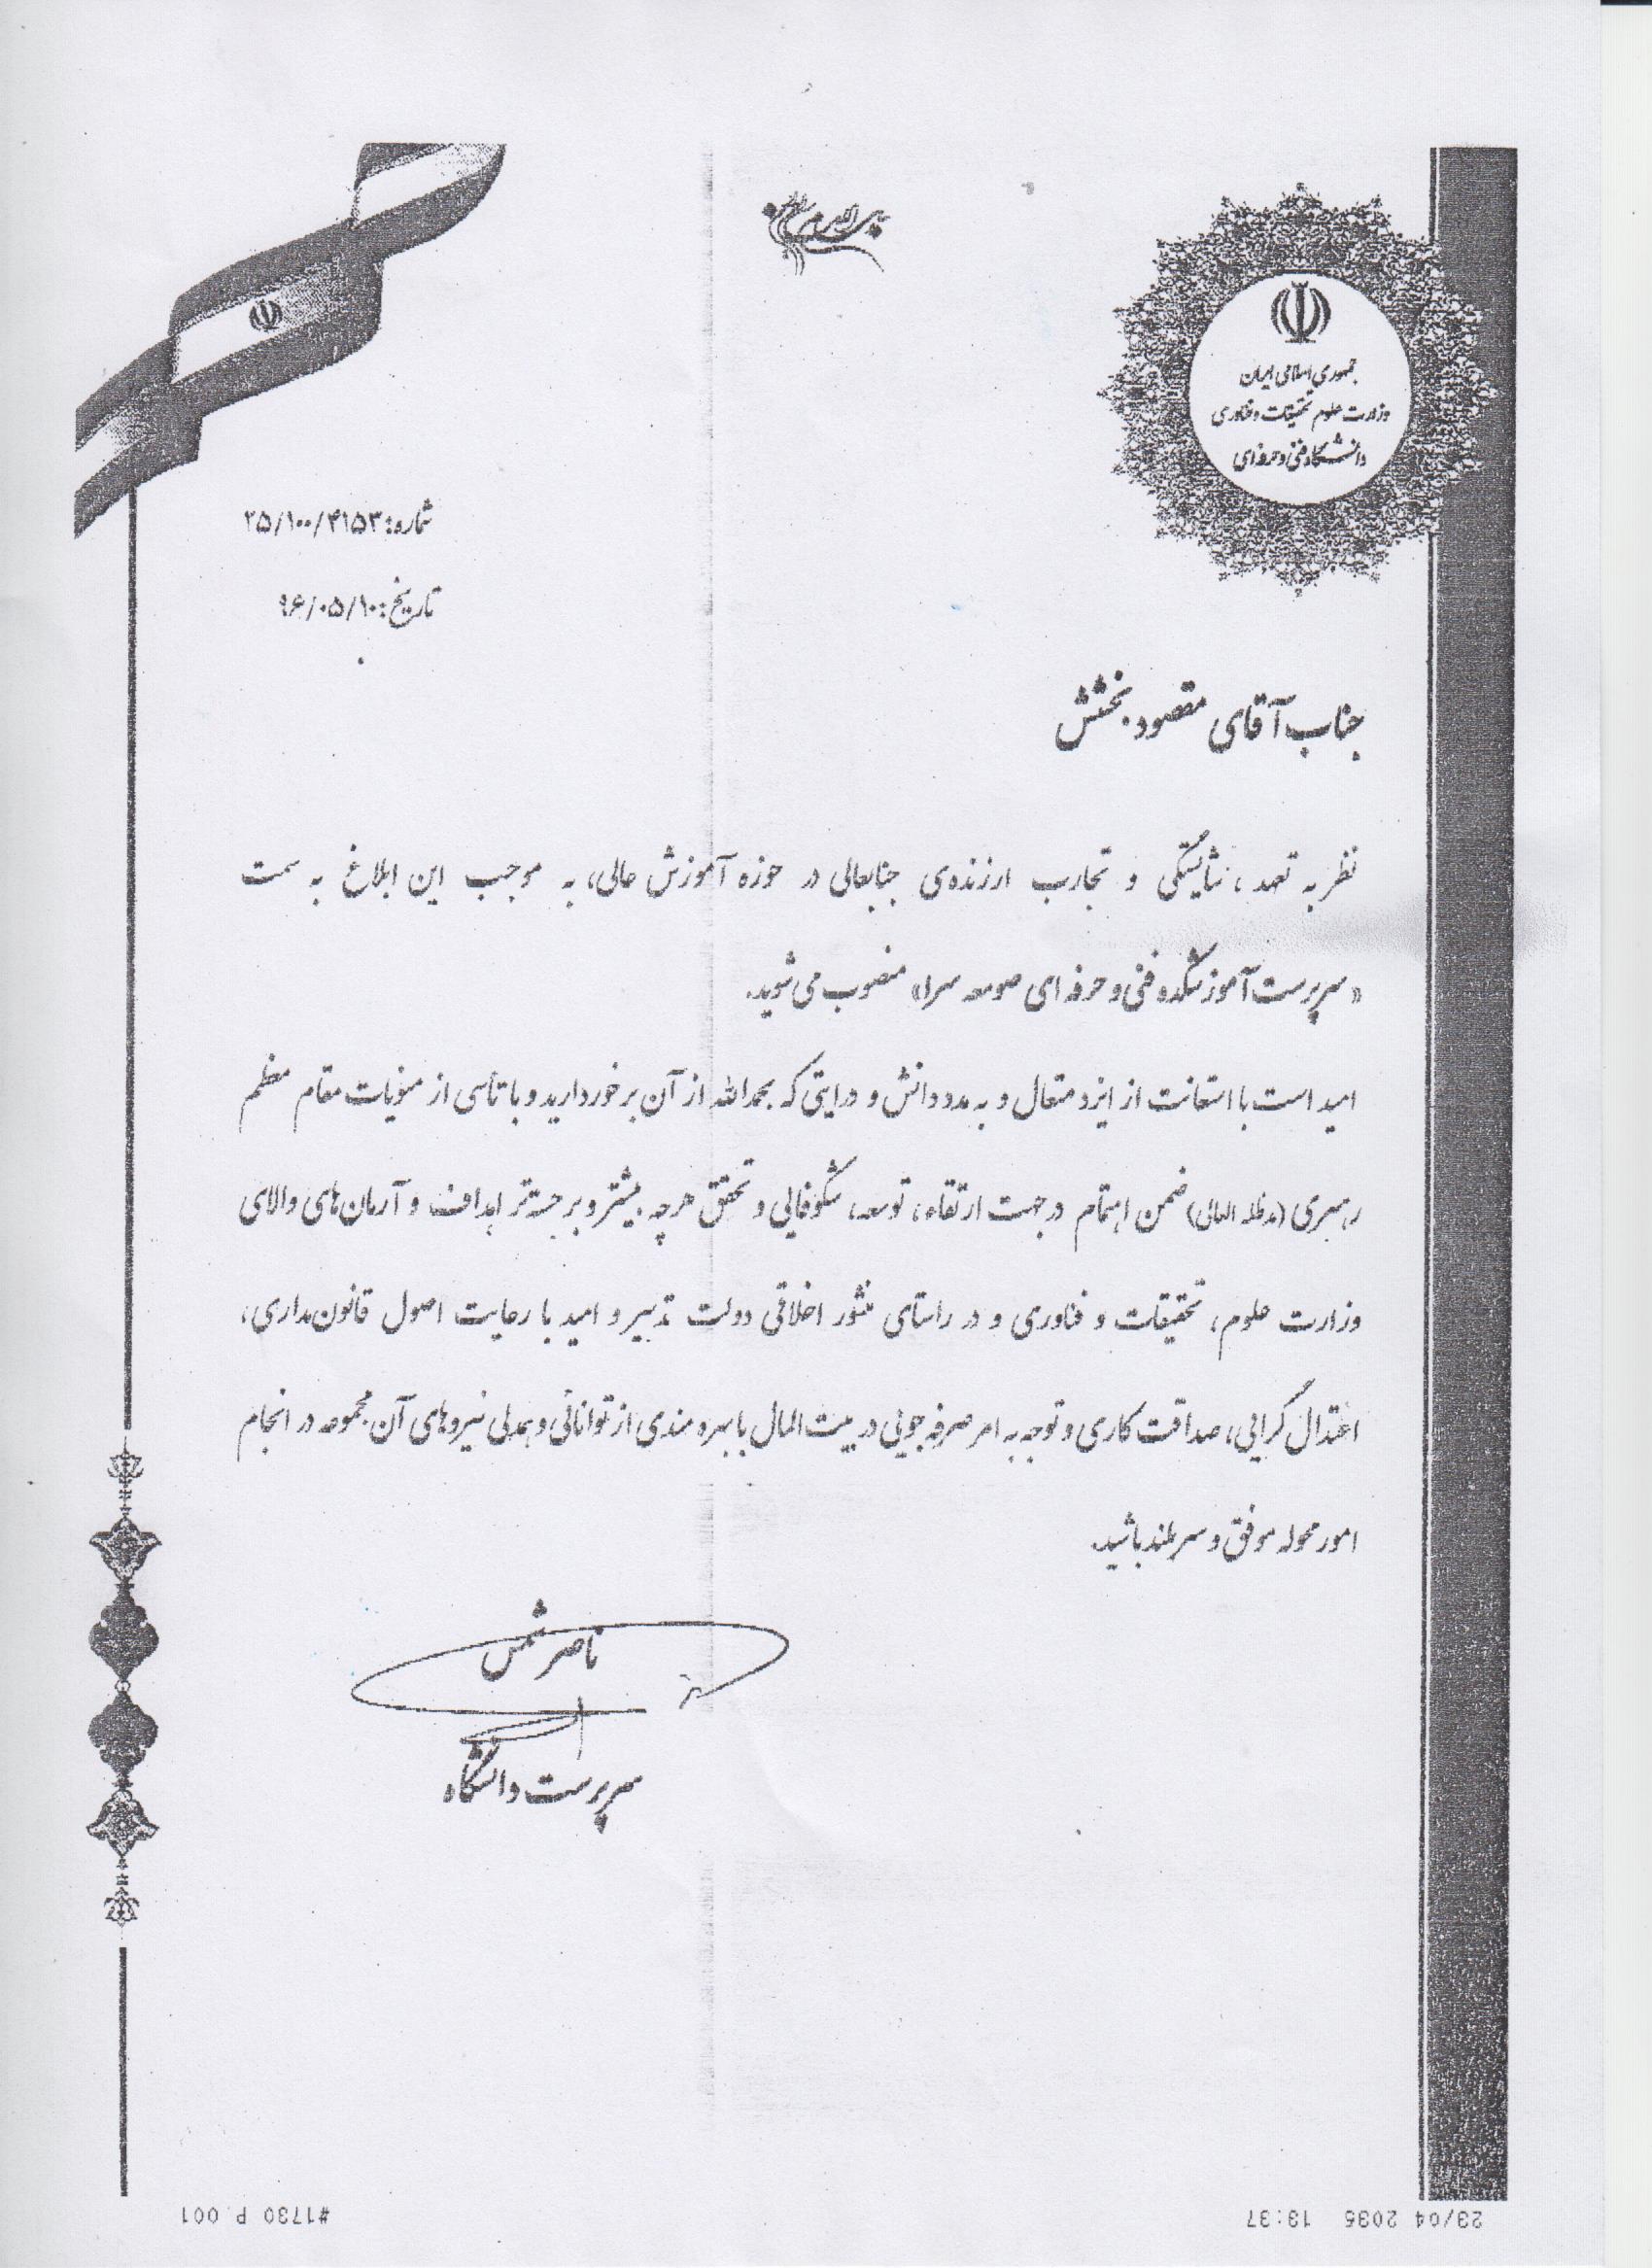 بسم الله الرحمن الرحیم
جمهوری اسلامی ایران
وزارت علوم تحقیقات و فناوری
دانشگاه فنی و حرفه‌ای
شماره: ۲۵/۱۰۰/۴۱۵۳
تاریخ: ۹۶/۰۵/۱۰
جناب آقای مقصود بخشش
نظر به تعهد، شایستگی و تجارب ارزنده‌ی جنابعالی در حوزه آموزش عالی، به موجب این ابلاغ به سمت
«سرپرست آموزشکده فنی و حرفه ای صومعه سرا» منصوب می‌شوید.
امید است با استعانت از ایزد متعال و به مدد دانش و درایتی که بحمدالله از آن برخوردارید و با تأسی از منویات مقام معظم
رهبری (مدظله العالی) ضمن اهتمام در جهت ارتقاء، توسعه، شکوفائی و تحقق هرچه بیشتر و برجسته‌تر اهداف و آرمان‌های والای
وزارت علوم، تحقیقات و فناوری و در راستای منشور اخلاقی دولت تدبیر و امید با رعایت اصول قانون‌مداری،
اعتدال گرایی، صداقت کاری و توجه به امر صرفه جوئی در بیت المال با بهره مندی از توانائی و همدلی نیروهای آن مجموعه در انجام
امور محوله موفق و سربلند باشید.
ناصر شمس
سرپرست دانشگاه
23/04 2035 13:37
#1730 P.001